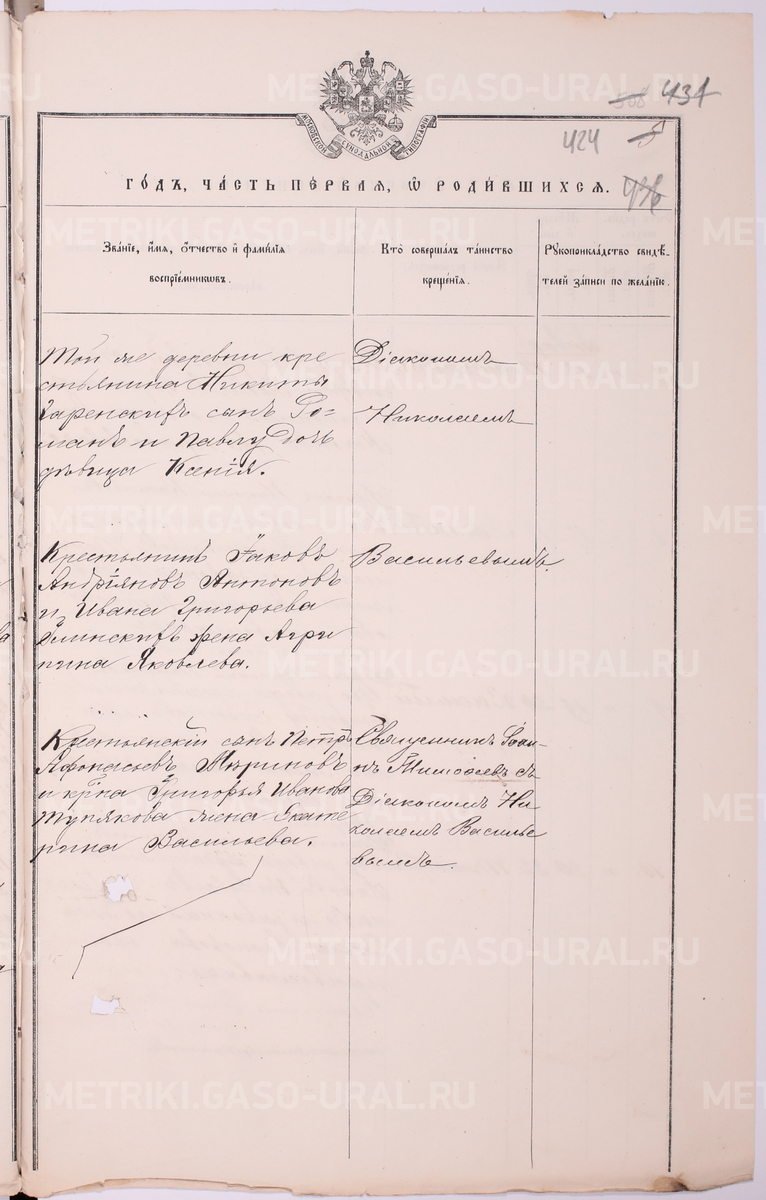 508 431
МОСКОВСКОЙ СѴНОДАЛЬНОЙ ТИПОГРАФІИ
424 5
ГО́ДЪ, ЧА́СТЬ ПЕ́РВАЯ, Ѽ РОДИ́ВШИХСЯ. 436
Зва́ніе, и́мя, о́тчество и҆ фами́лія
воспріе́мникѡвъ.
Кто̀ соверша́лъ та́инство
креще́нія.
Рꙋкоприкла́дство свидѣ́-
телей за́писи по жела́нію.
Той же деревни кре
стьянина Никиты
сынъ Ро-
манъ и Павлу доч
дѣвица Ксенія.
Діакономъ
Николаемъ
Крестьянинъ Іаковъ
Андріяновъ Антоновъ
и Ивана Григорьева
жена Агри
пина Яковлева.
Васильевымъ,
Крестьянскій сынъ Петръ
Афонасьевъ
и кр-на Григорья Иванова
Тупякова жена Екате
рина Васильева.
Священникъ Іоан-
нъ Тимофеевъ съ
Діакономъ Ни
колаемъ Василье
вымъ.
METRIKI.GASO-URAL.RU